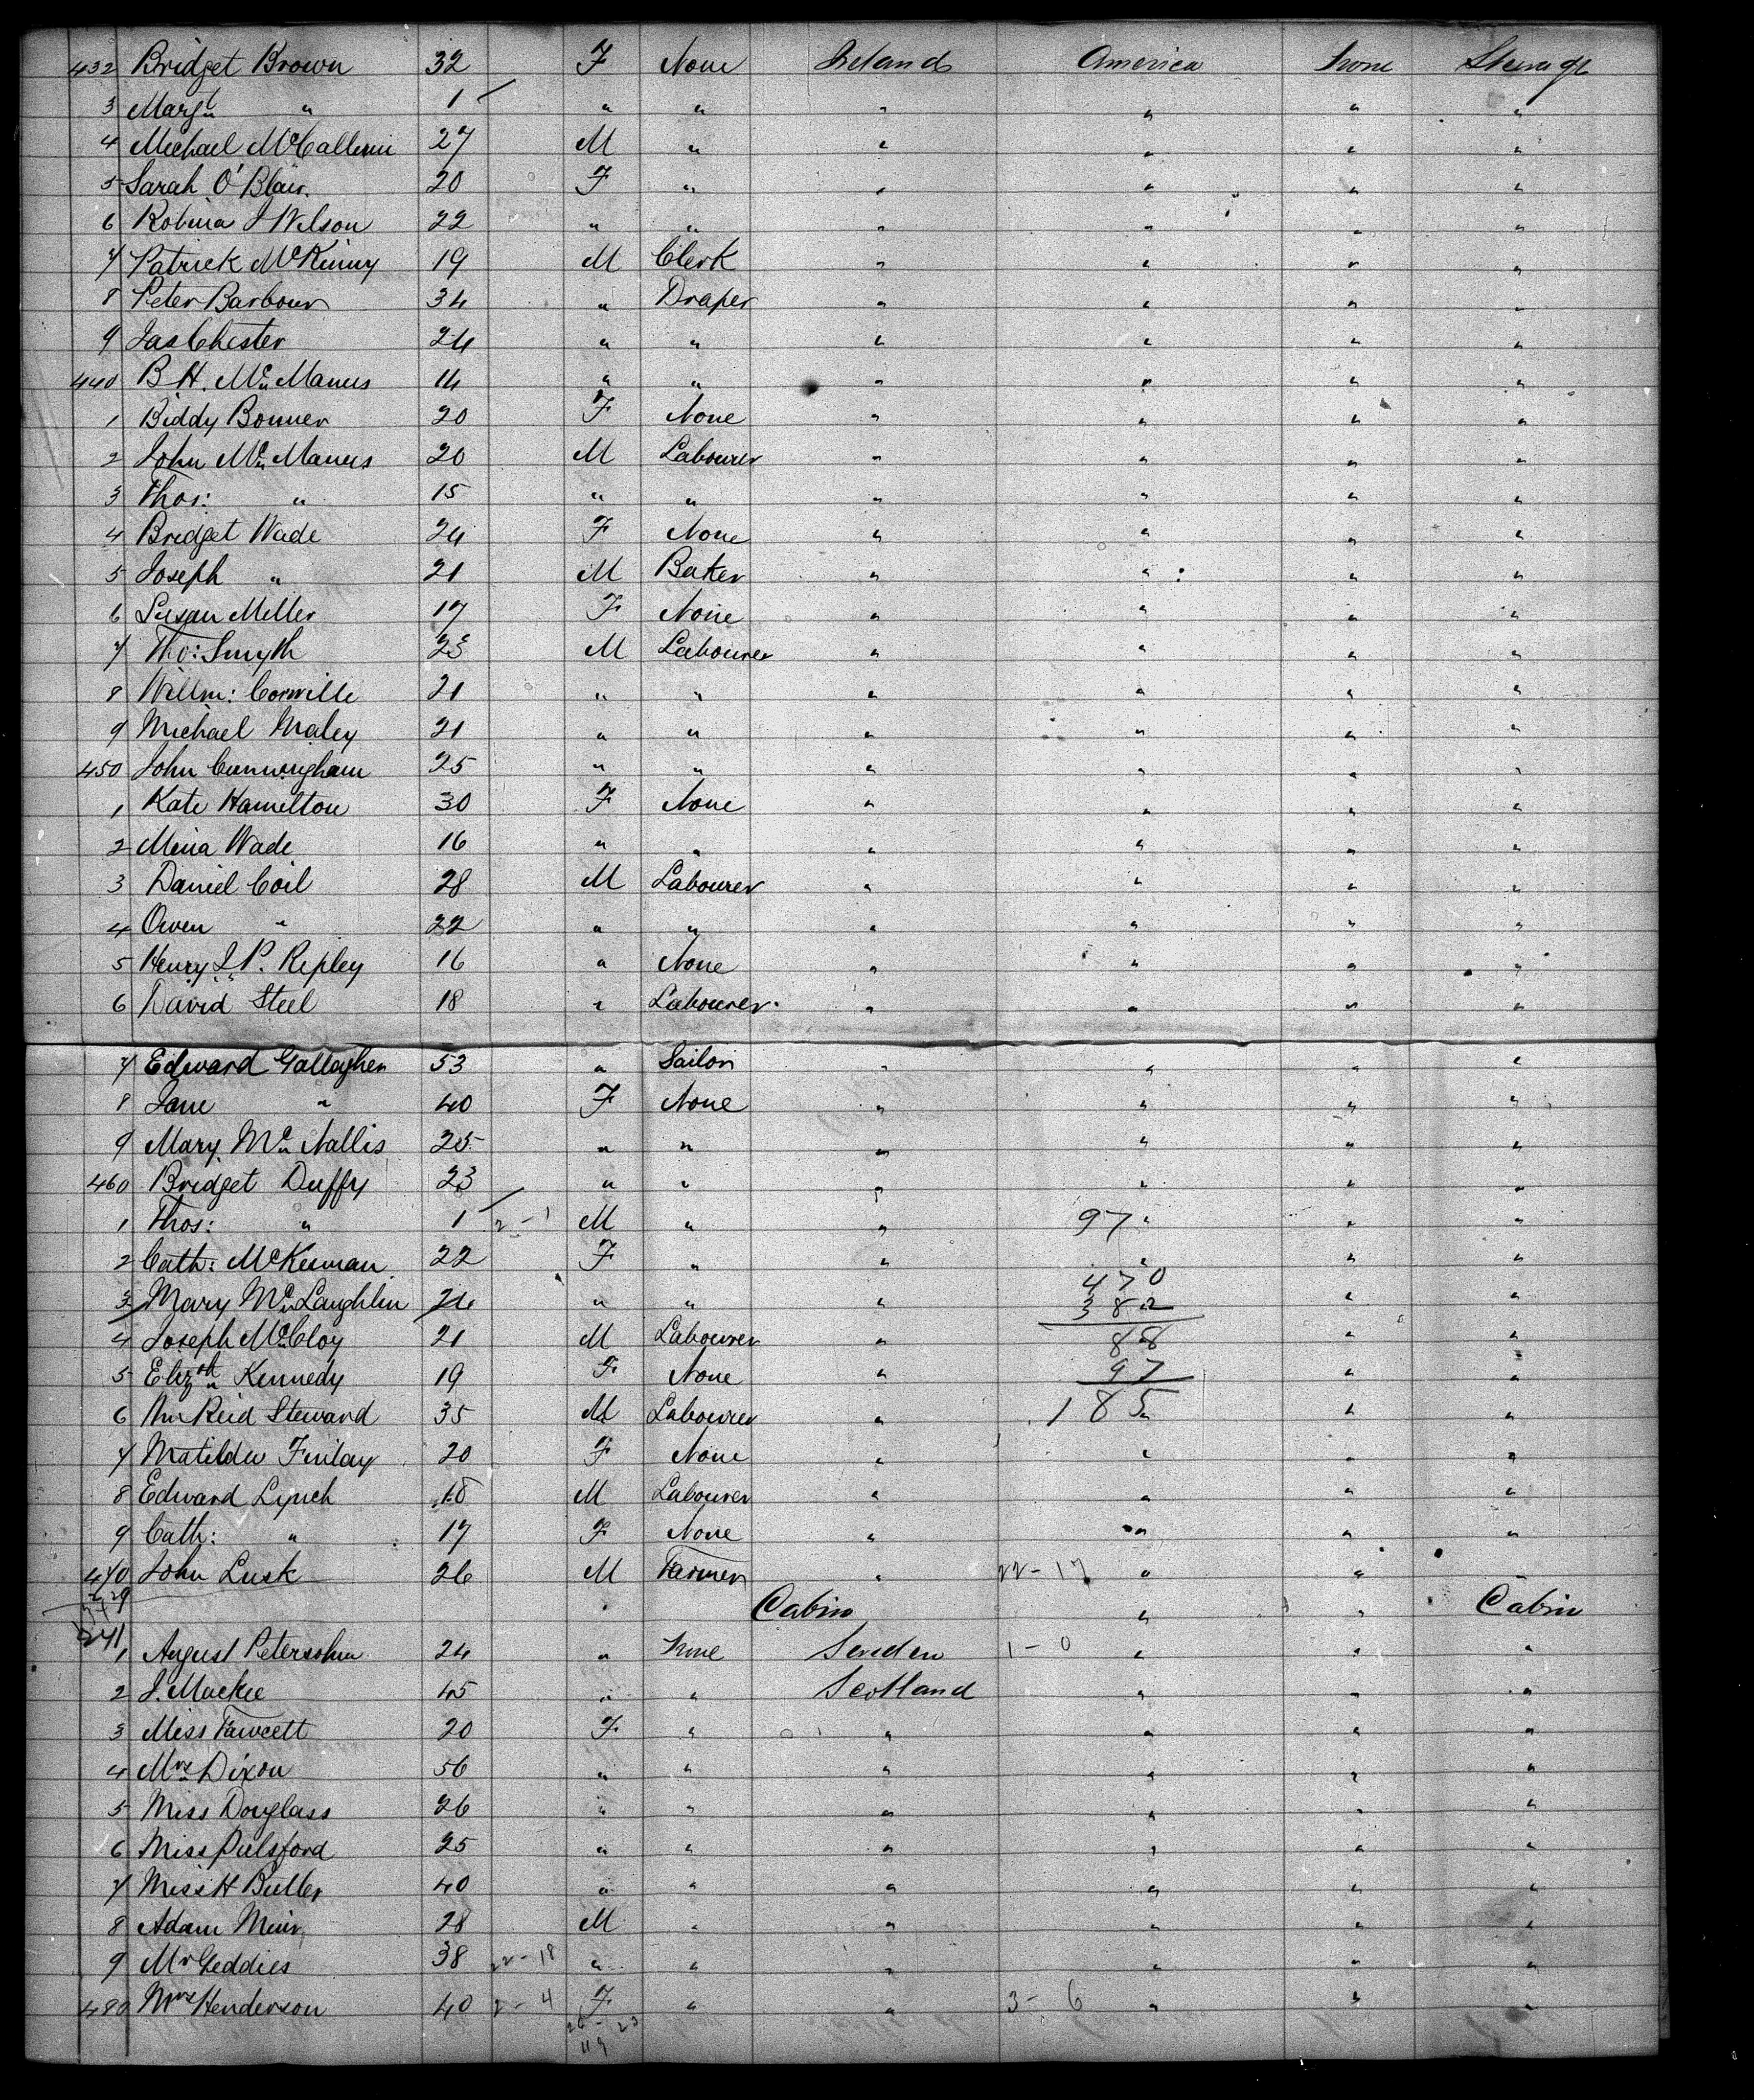 432 Bridget Brown 32 F None Ireland America None Steerage
3 Margt " 1 " " " " " "
4 Michael McCallum 27 M " " " " "
5 Sarah O'Blair 20 F " " " " "
6 Robina J Wilson 22 " " " " " "
7 Patrick McKinny 19 M Clerk " " " "
8 Peter Barbour 34 " Draper " " " "
9 Jas Chester 24 " " " " " "
440 B H. Mc Manus 14 " " " " " "
1 Biddy Bonner 20 F None " " " "
2 John Mc Manus 20 M Labourer " " " "
3 Thos: " 15 " " " " " "
4 Bridget Wade 24 F None " " " "
5 Joseph " 21 M Baker " " " "
6 Susan Miller 17 F None " " " "
7 Tho: Smyth 23 M Labourer " " " "
8 Willm: Corville 21 " " " " " "
9 Michael Maley 21 " " " " " "
450 John Cunningham 25 " " " " " "
1 Kate Hamilton 30 F None " " " "
2 Mina Wade 16 " " " " " "
3 Daniel Coil 28 M Labourer " " " "
4 Owen " 22 " " " " " "
5 Henry J. P. Ripley 16 " None " " " "
6 David Steel 18 " Labourer " " " "
7 Edward Gallagher 53 " Sailor " " " "
8 Jane " 40 F None " " " "
9 Mary Mc Nallis 25 " " " " " "
460 Bridget Duffy 23 " " " " " "
1 Thos: " 1 2-1 M " " 97 " " "
2 Cath: McKernan 22 F " " " " "
470
3 Mary McLaughlin 24 " " " 382 " "
4 Joseph McCloy 21 M Labourer " 88 " "
5 Elizth Kennedy 19 F None " 97 " "
6 Wm Reid Steward 35 M Labourer " 185 " "
7 Matilda Finlay 20 F None " " " "
8 Edward Lynch 18 M Labourer " " " "
9 Cath: " 17 F None " " " "
470 John Lusk 26 M Farmer " 22-17 " "
Cabin " " Cabin
241
1 August Petersohn 24 " None Sweden 1-0 " " "
2 J. Mackie 45 " " Scotland " " "
3 Miss Fawcett 20 F " " " " "
4 Mrs Dixon 56 " " " " " "
5 Miss Douglass 26 " " " " " "
6 Miss Pulsford 25 " " " " " "
7 Miss H Butler 40 " " " " " "
8 Adam Muir 28 M " " " " "
9 Mr Geddies 38 22-18 " " " " " "
480 Mrs Henderson 40 2-4 F " " 3-6 " " "
119